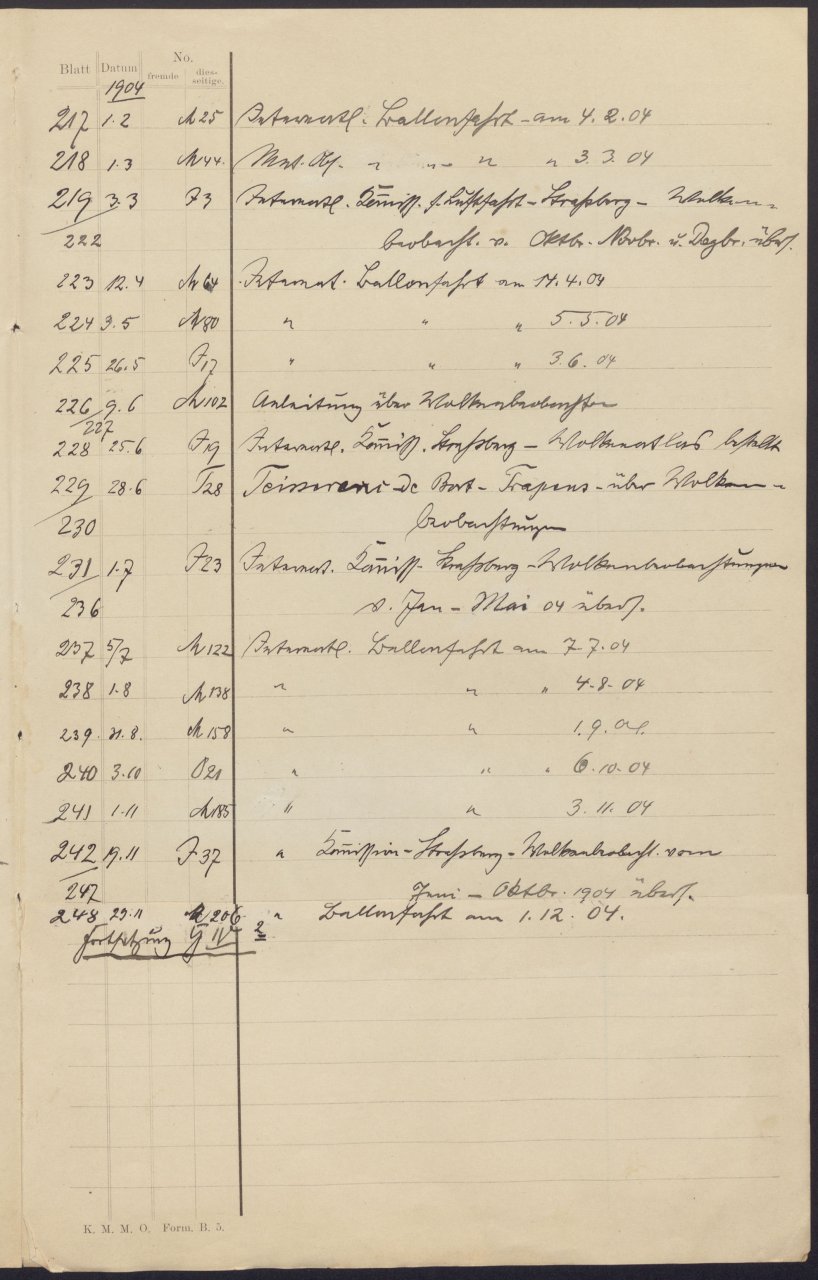 Blatt Datum No.
fremde dies-
seitige.
1904
217 1.2 M25 Internatl. Ballonfahrt - am 4.2.04
218 1.3 M44. Met. Obs. " " " " 3.3.04
219 3.3 J3 Internatl. Komiss. f. Luftfahrt - Straßburg - Wolken-
222 beobacht. v. Oktbr. Novbr. u. Dezbr. übers.
223 12.4 M64 Internat. Ballonfahrt am 14.4.04
224 3.5 M80 " " " 5.5.04
225 26.5 J17 " " " 3.6.04
226 9.6 M102 Anleitung über Wolkenbeobachten
227
228 25.6 J19 Internatl. Komiss. Straßburg - Wolkenatlas bestellt
229 28.6 T28 Teisserenc de Bort - Trapens - über Wolken-
230 beobachtungen
231 1.7 J23 Internat. Komiss. Straßburg - Wolkenbeobachtungen
236 v. Jan - Mai 04 übers.
237 5/7 M122 Internatl. Ballonfahrt am 7.7.04
238 1.8 M138 " " " 4.8.04
239. 31.8. M158 " " 1.9.04.
240 3.10 O21 " " " 6.10.04
241 1.11 M185 " " 3.11.04
242 19.11 J37 " Komission - Straßburg - Wolkenbeobacht. vom
247 Juni - Oktbr. 1904 übers.
248 29.11 M206 " Ballonfahrt am 1.12.04.
Fortsetzung IV 2
K. M. M. O. Form. B. 5.